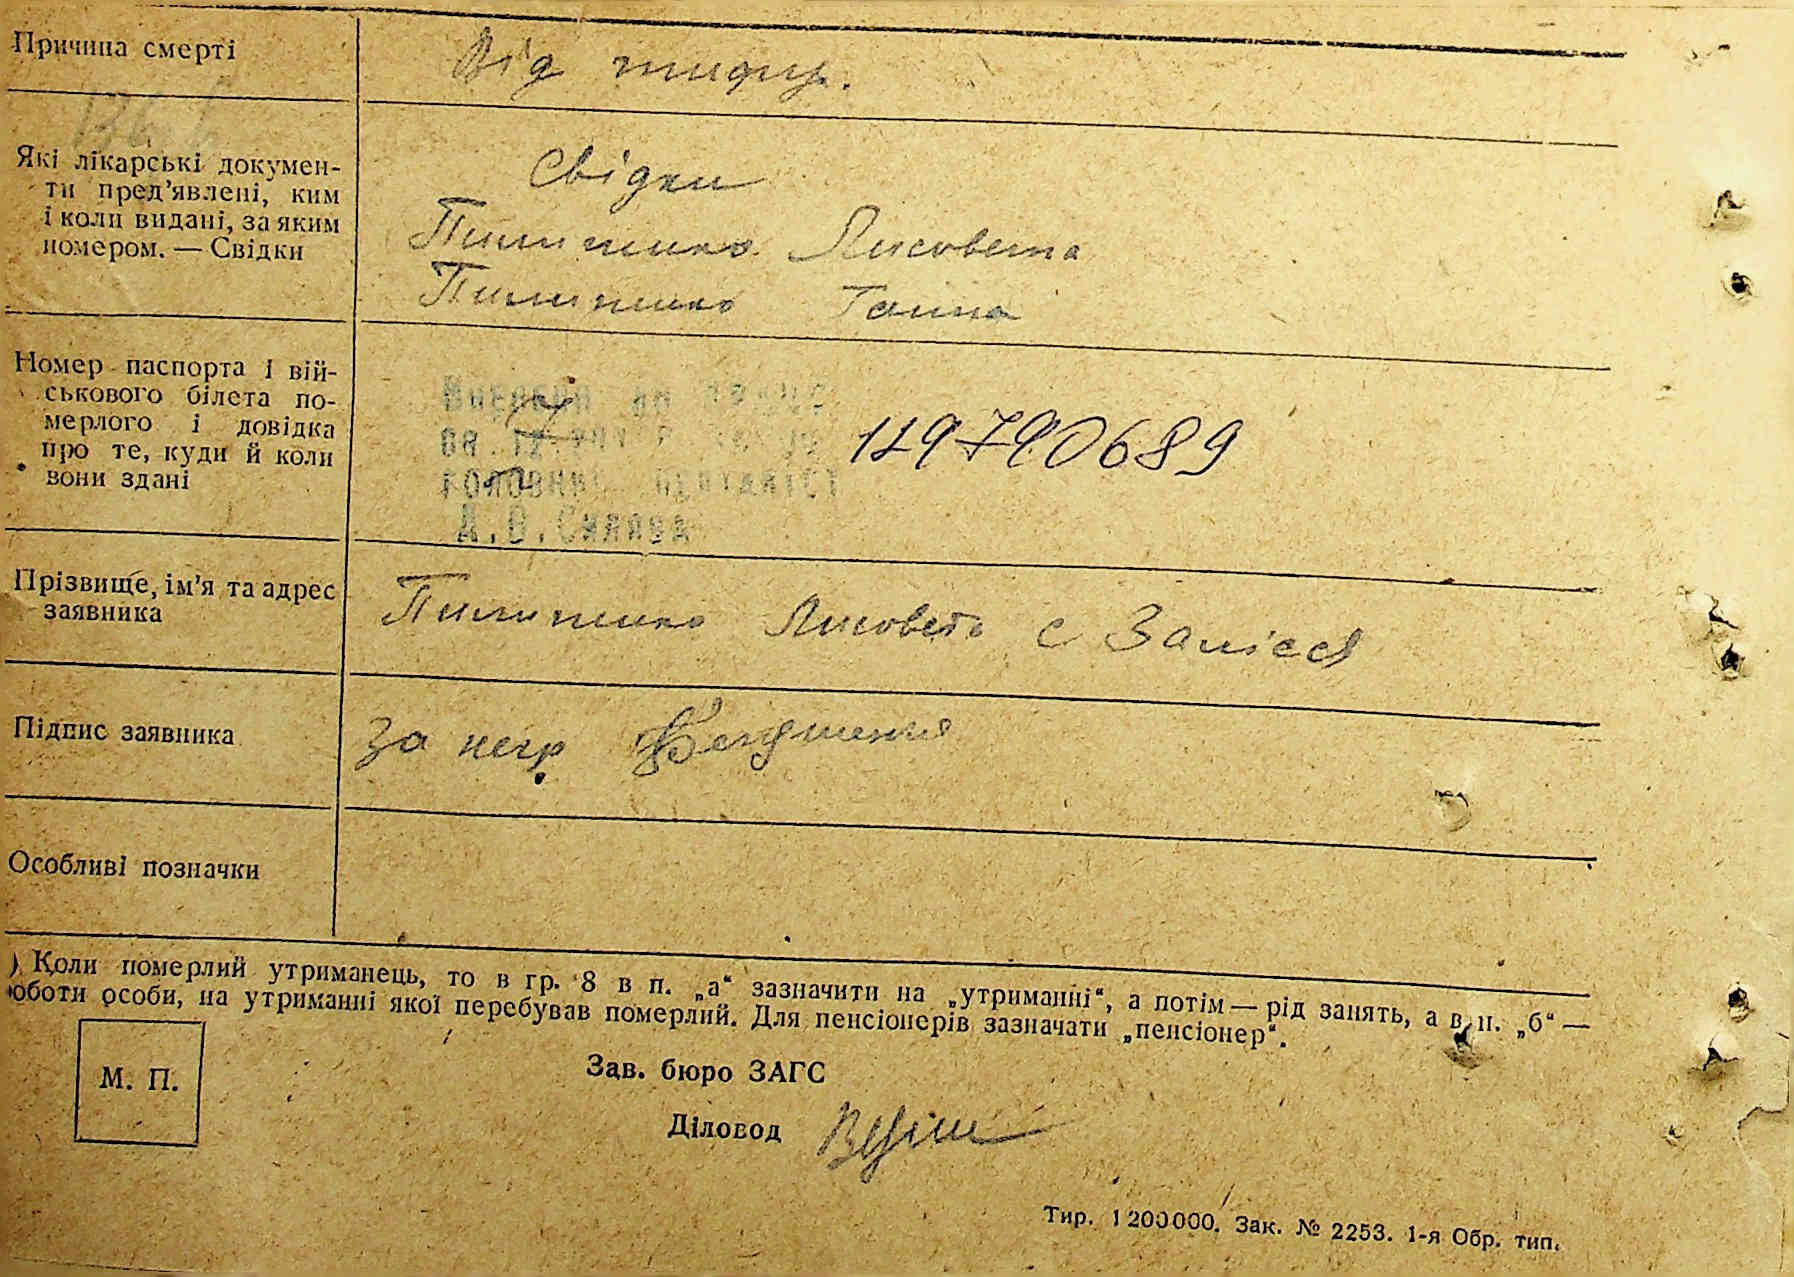 Причина смерті
Від тифу.
Які лікарські докумен-
ти пред'явлені, ким
і коли видані, за яким
номером. — Свідки
Свідки
Пилипенко Лисовета
Пилипенко Ганна
Номер паспорта і вій-
ськового білета по-
мерлого і довідка
про те, куди й коли
вони здані
119790689
Прізвище, ім'я та адрес
заявника
Пилипенко Лисовета с Залісся
Підпис заявника
За негр
Особливі позначки
) Коли померлий утриманець, то в гр. 8 в п. „а“ зазначити на „утриманні“, а потім — рід занять, а в п. „б“ —
роботи особи, на утриманні якої перебував померлий. Для пенсіонерів зазначати „пенсіонер“.
М. П.
Зав. бюро ЗАГС
Діловод
Тир. 1200000. Зак. № 2253. 1-я Обр. тип.